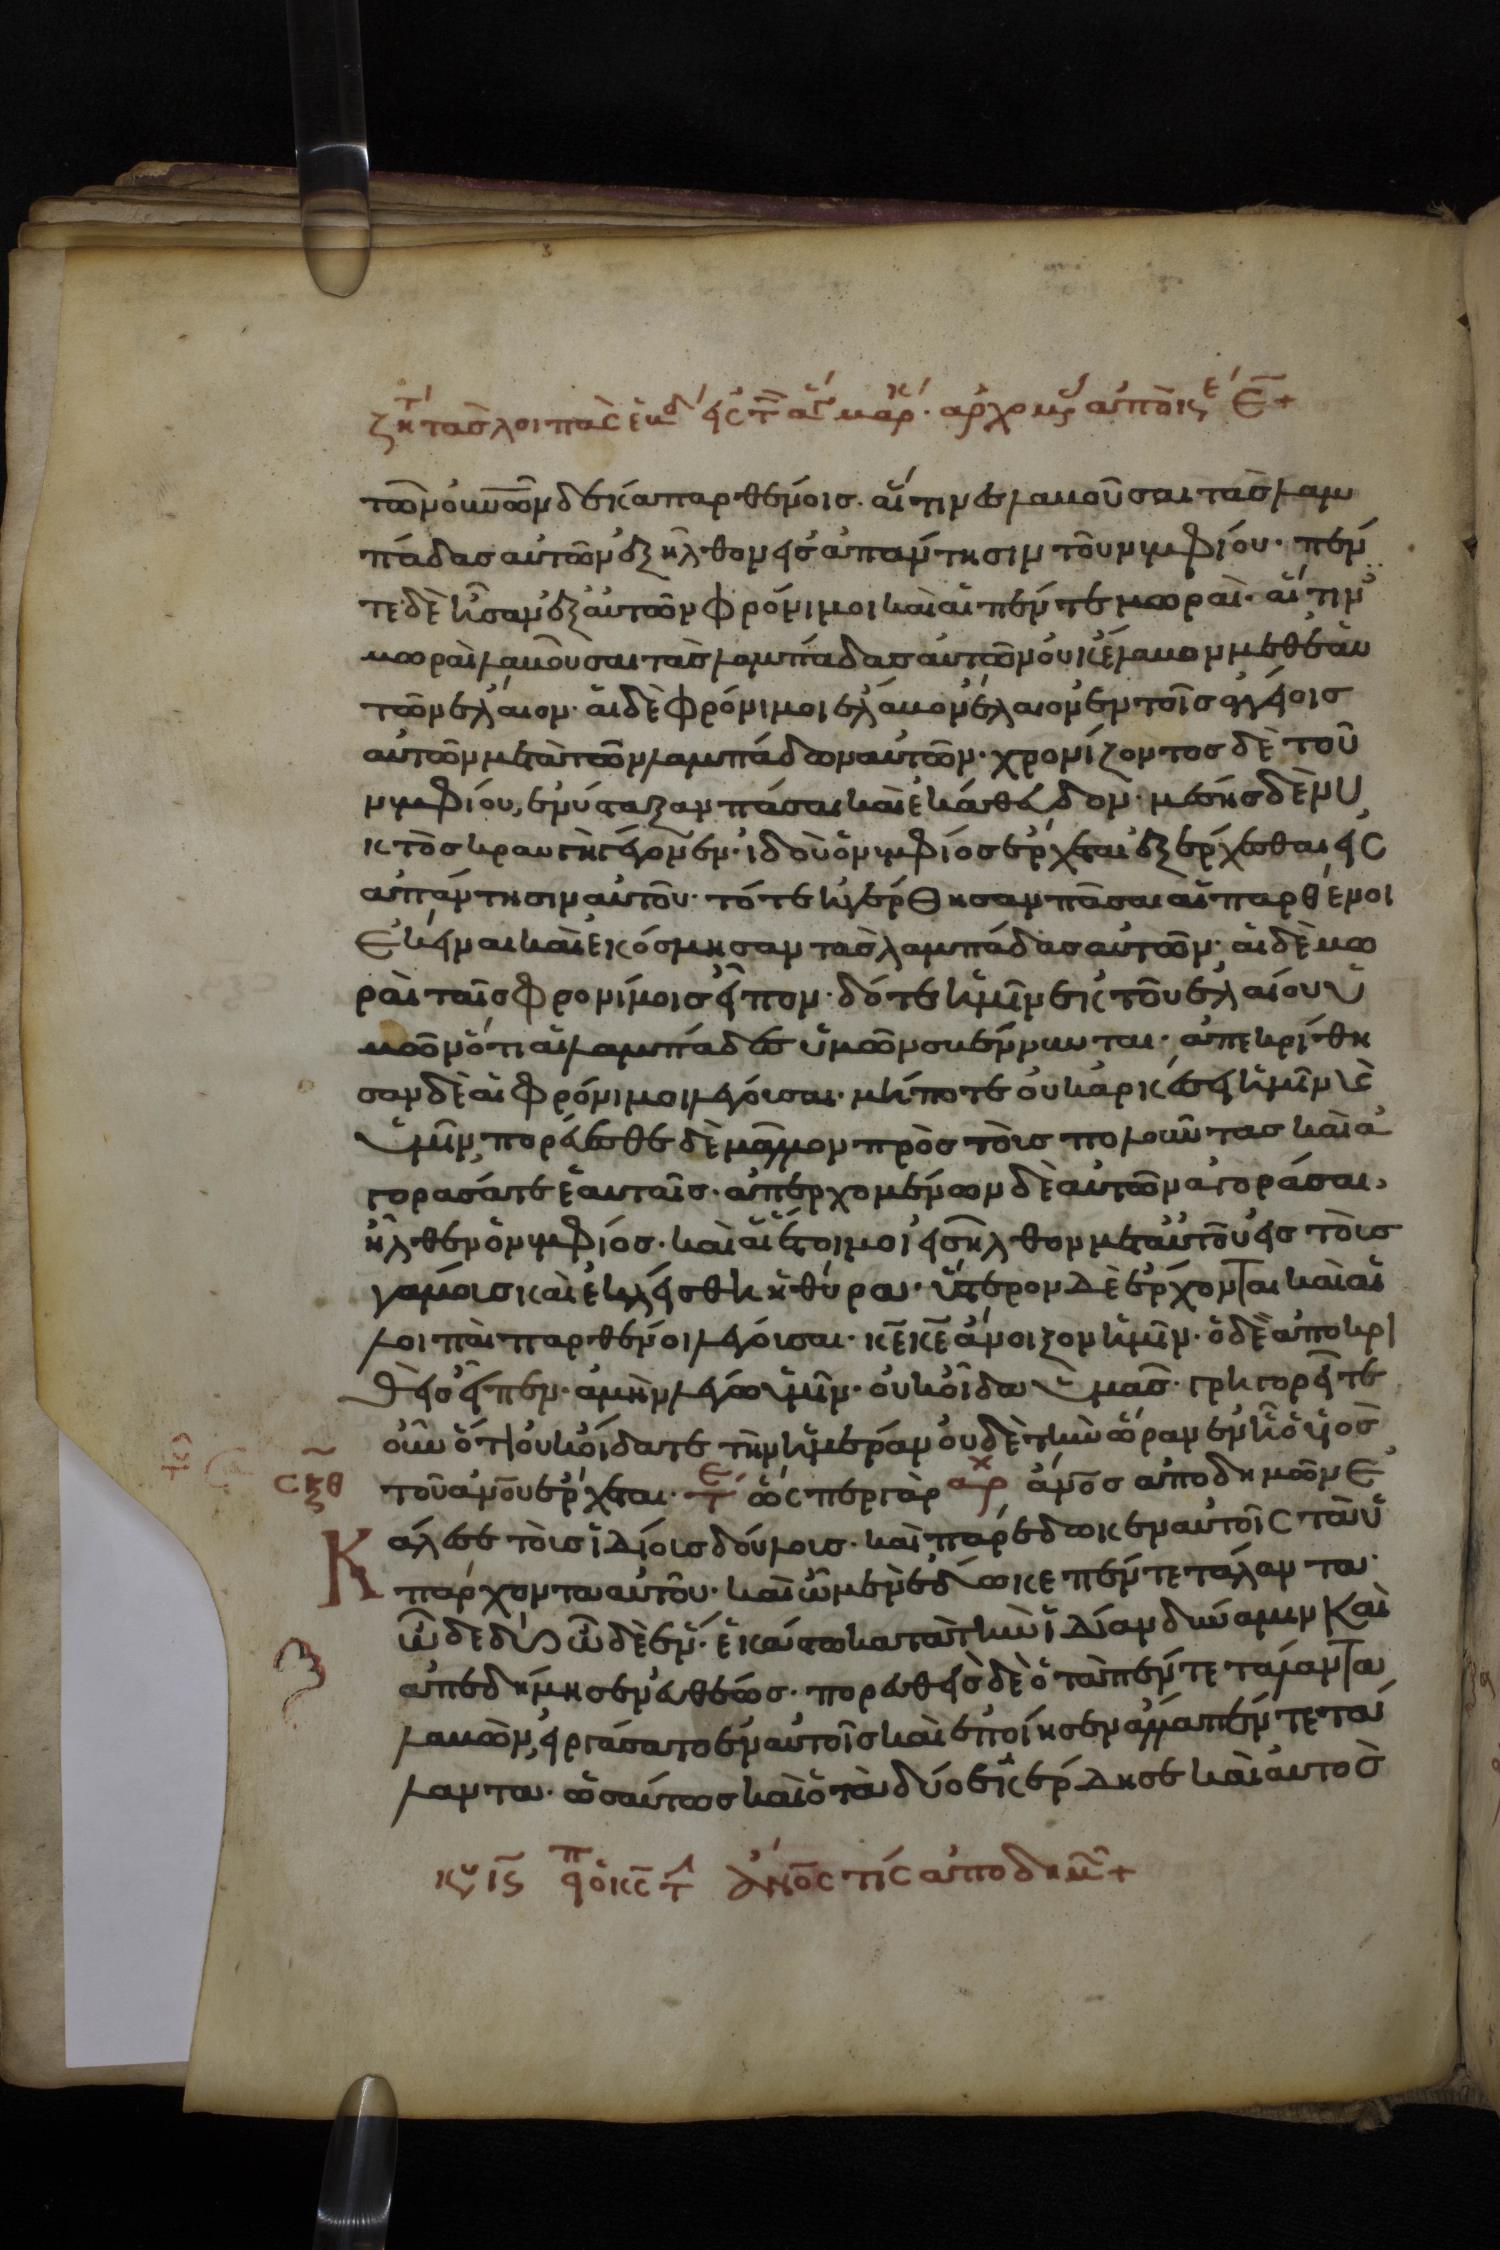 τῶν οὐνῶν δέκα παρθένοις. αἵτινες λαβοῦσαι τὰς λαμ
πάδας αὐτῶν ἐξῆλθον εἰς ἀπάντησιν τοῦ νυμφίου. πέν
τε δὲ ἦσαν ἐξ αὐτῶν φρόνιμοι καὶ αἱ πέντε μωραὶ. αἵτιν
μωραὶ λαβοῦσαι τὰς λαμπάδας αὐτῶν οὐκ ἔλαβον μεθ ἑαυ
τῶν ἔλαιον. αἱ δὲ φρόνιμοι ἔλαβον ἔλαιον ἐν τοῖς ἀγγείοις
αὐτῶν μετὰ τῶν λαμπάδων αὐτῶν. χρονίζοντος δὲ τοῦ
νυμφίου, ἐνύσταξαν πᾶσαι καὶ ἐκάθευδον. μέσης δὲ νυ
κτὸς κραυγὴ γέγονεν. ἰδοὺ ὁ νυμφίος ἔρχεται ἐξέρχεσθαι εἰς
ἀπάντησιν αὐτοῦ. τότε ἠγέρθησαν πᾶσαι αἱ παρθένοι
ἐκεῖναι καὶ ἐκόσμησαν τὰς λαμπάδας αὐτῶν. αἱ δὲ μω
ραὶ ταῖς φρονίμοις εἶπον. δότε ἡμῖν ἐκ τοῦ ἐλαίου ὑ
μῶν ὅτι αἱ λαμπάδες ὑμῶν σβέννυνται. ἀπεκρίθη
σαν δὲ αἱ φρόνιμοι λέγουσαι. μήποτε οὐκ ἀρκέσει ἡμῖν κὲ
ὑμῖν, πορεύεσθε δὲ μᾶλλον πρὸς τοὺς πολοῦντας καὶ ἀ
γορασάτε ἑαυταῖς. ἀπερχομένων δὲ αὐτῶν ἀγοράσαι,
ἦλθεν ὁ νυμφίος. καὶ αἱ ἕτοιμοι εἰσῆλθον μετ αὐτοῦ εἰς τοὺς
γάμους καὶ ἐκλείσθη ἡ θύρα. ὕστερον δὲ ἔρχονται καὶ αἱ
λοιπαὶ παρθένοι λέγουσαι. κε κε ἄνοιξον ἡμῖν. ὁ δὲ ἀποκρι
θεὶς εἶπεν. ἀμὴν λέγω ὑμῖν. οὐκ οἶδα ὑμᾶς. γρηγορεῖτε
οὖν ὅτι οὐκ οἴδατε τὴν ἡμέραν οὐδὲ τὴν ὥραν ἐν ἧ ὁ υἱος
σξθ τοῦ ἀνου ἔρχεται. τε ὥσπερ γὰρ αρχ ἀνος ἀποδημῶν ἐ
κάλεσε τοὺς ἰδίους δούλους. καὶ παρέδωκεν αὐτοῖς τὰ ὑ
πάρχοντα αὐτοῦ. καὶ ὧ μὲν ἔδωκε πέντε τάλαντα.
ὧ δὲ δύο ὧ δὲ ἕν. ἑκάστω κατὰ τὴν ἰδίαν δύναμιν καὶ
ἀπεδήμησεν εὐθέως. πορευθεὶς δὲ ὁ τὰ πέντε τάλαντα
λαβῶν, εἰργάσατο ἐν αὐτοῖς καὶ ἐποίησεν ἄλλα πέντε τά
λαντα. ὡσαύτως καὶ ὁ τὰ δύο ἐκέρδησε καὶ αὐτὸς
ἀνος τίς ἀποδημ +